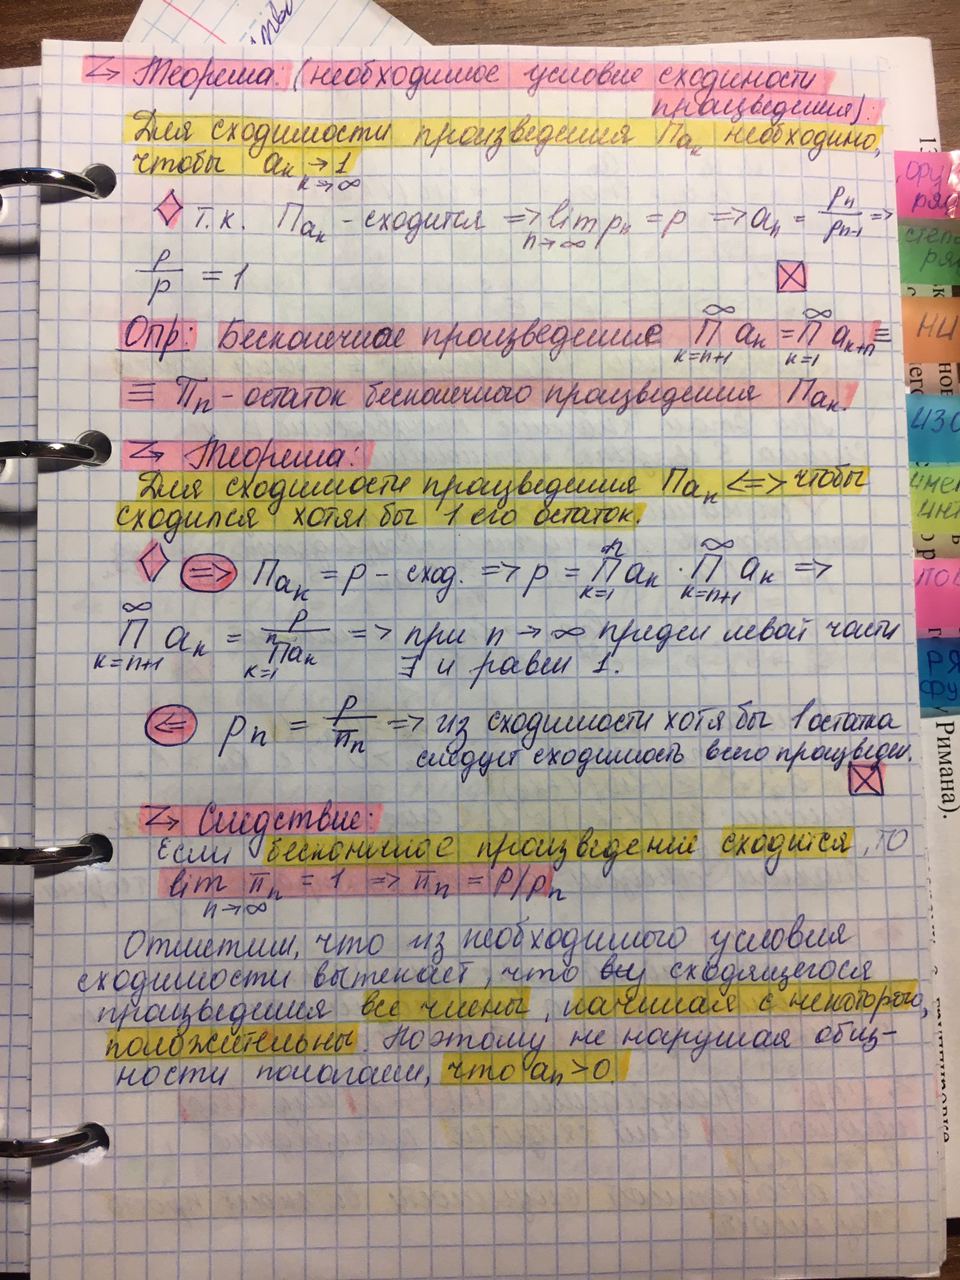 Теорема: (необходимое условие сходимости
произведения):
Для сходимости произведения Πaₖ необходимо,
чтобы aₖ → 1
k→∞
т.к. Πaₖ - сходится => lim pₙ = p => aₙ = pₙ/pₙ₋₁ =>
n→∞
p/p = 1
Опр: Бесконечное произведение ∏_{k=n+1}^{∞} aₖ = ∏_{k=1}^{∞} aₖ₊ₙ ≡
≡ πₙ - остаток бесконечного произведения Πaₖ.
Теорема:
Для сходимости произведения Πaₙ <=> чтобы
сходился хотя бы 1 его остаток.
=> Πaₖ = p - сход. => p = ∏_{k=1}^{n} aₖ · ∏_{k=n+1}^{∞} aₖ =>
∏_{k=n+1}^{∞} aₖ = p / ∏_{k=1}^{n} aₖ => при n → ∞ предел левой части
∃ и равен 1.
<= pₙ = p/πₙ => из сходимости хотя бы 1 остатка
следует сходимость всего произведен.
Следствие:
Если бесконечное произведение сходится, то
lim πₙ = 1 => πₙ = P/pₙ
n→∞
Отметим, что из необходимого условия
сходимости вытекает, что у сходящегося
произведения все члены, начиная с некоторого,
положительны. Поэтому не нарушая общ-
ности полагаем, что aₙ > 0.
Римана).